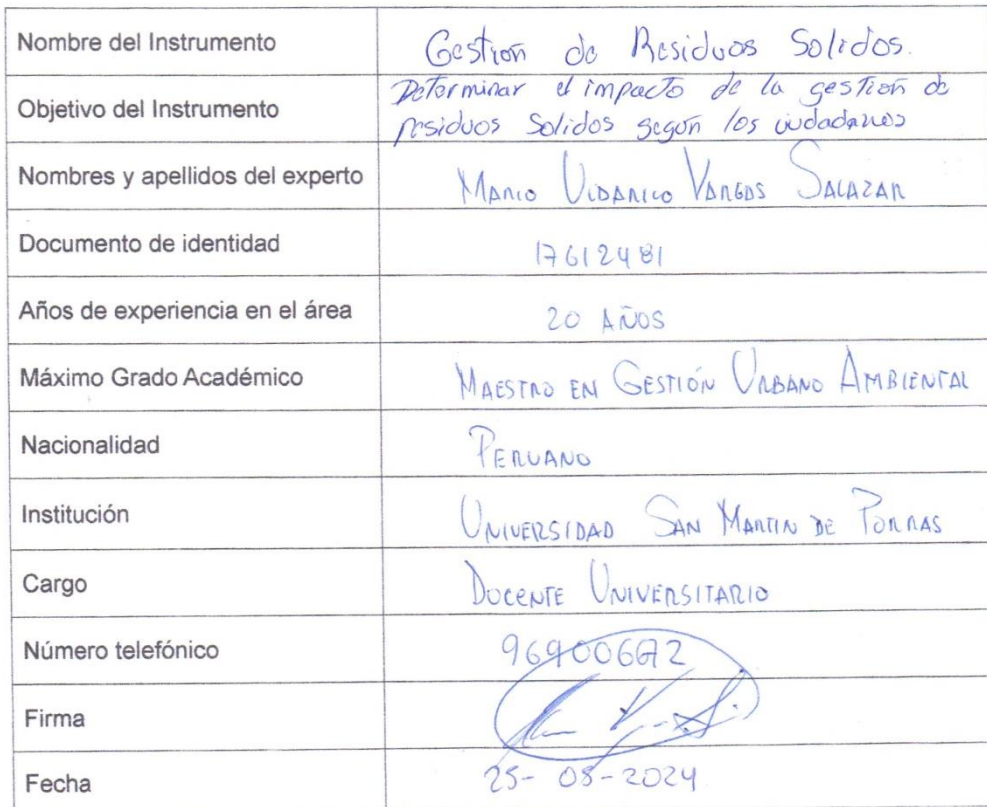 Nombre del Instrumento
Gestion de Residuos Solidos.
Objetivo del Instrumento
Determinar el impacto de la gestión de
residuos Solidos según los ciudadanos
Nombres y apellidos del experto
MARIO VARGAS SALAZAR
Documento de identidad
17612481
Años de experiencia en el área
20 AÑOS
Máximo Grado Académico
MAESTRO EN GESTIÓN URBANO AMBIENTAL
Nacionalidad
PERUANO
Institución
UNIVERSIDAD SAN MARTIN DE PORRAS
Cargo
DOCENTE UNIVERSITARIO
Número telefónico
Firma
Fecha